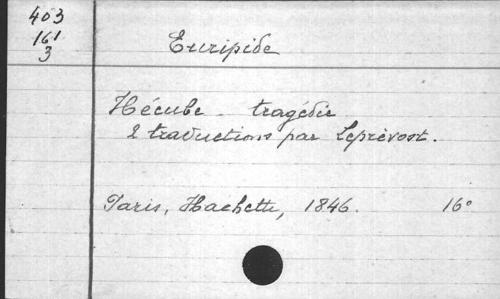 403
161
3
Euripide
Hécube - tragédie
2 traductions par Leprévost.
Paris, Hachette, 1846. 16°